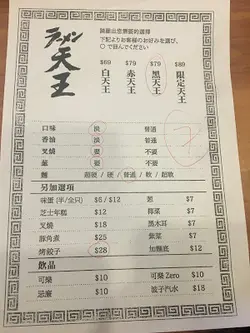 ラーメン
天王
請圈出您想要的選擇
下記よりお客様のお好みを選び、
○で囲んでください
$69 $79 $79 $89
白天王 赤天王 黑天王 限定天王
口味 淡 普通
香油 淡 普通
叉燒 要 不要
葱 要 不要
麵 超硬 / 硬 / 普通 / 軟 / 超軟
另加選項
味蛋 (半/全只) $6 / $12 葱 $7
芝士年糕 $12 椰菜 $7
叉燒 $18 黑木耳 $7
豚角煮 $25 紫菜 $7
烤餃子 $28 加麵底 $12
飲品
可樂 $10 可樂 Zero $10
忌廉 $10 波子汽水 $18